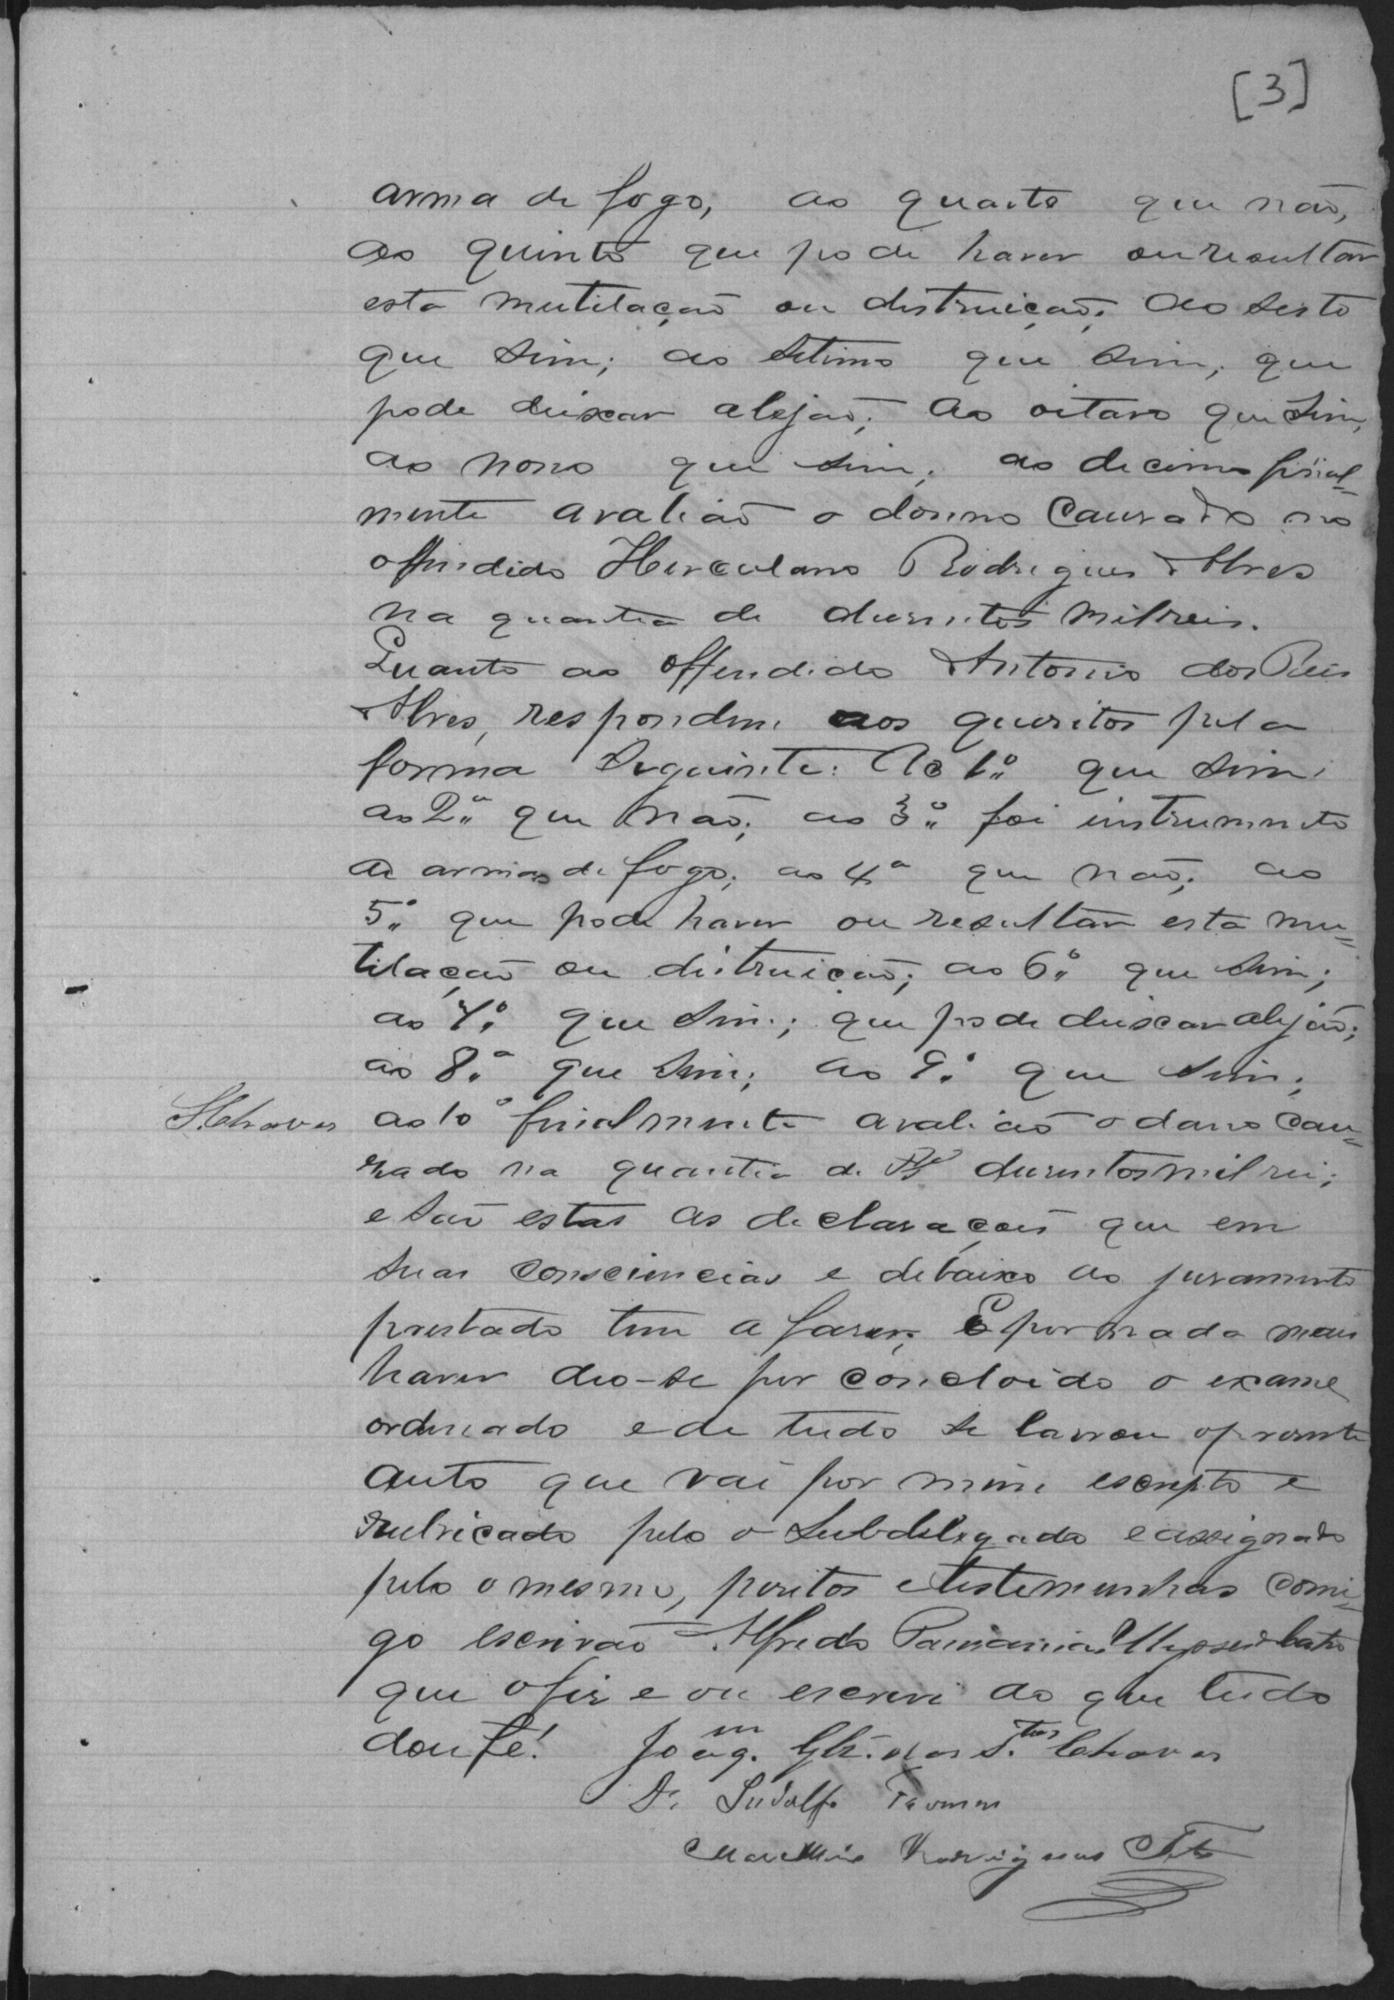 [3]
arma de fogo, ao quarto que não,
ao quinto que pode haver ou resultar
esta mutilação ou distruição; Ao sesto
que sim; ao setimo que sim, que
pode deixar alejão; Ao oitavo que sim,
ao nono que sim; ao decimo final-
mente avalião o domno causado no
offendido Herculano Rodrigues Alves
na quantia de dusentos milreis.
Quanto ao offendido Antonio dos Reis
Alves, respondem aos queritos pela
forma seguinte: Ao 1º que sim;
ao 2º que não; ao 3º foi instrumento
de armas de fogo; ao 4º que não; ao
5º que pode haver ou resultar esta mu=
tilação ou distruição; ao 6º que sim;
ao 7º que sim; que pode deixar alejão;
ao 8º que sim; ao 9º que sim;
S.Chaves
ao 10º finalmente avalião o dano cau=
sado na quantia de dusentos milreis;
e são estas as declaraçoes que em
suas consciencias e debaixo do juramento
prestado tem a faser; E por nada mais
haver deo-se por concloido o exame
ordenado e de tudo se lavrou o presente
auto que vai por mim escripto e
rubricado pelo o Subdelegado e assignado
pelo o mesmo, peritos e testemunhas comi=
go escrivão Alfredo Pausanias
que o fiz e ou escrevi do que tudo
dou fé! Joaqm. Glz. dos S.tos Chaves
Dr.
Rodrigues